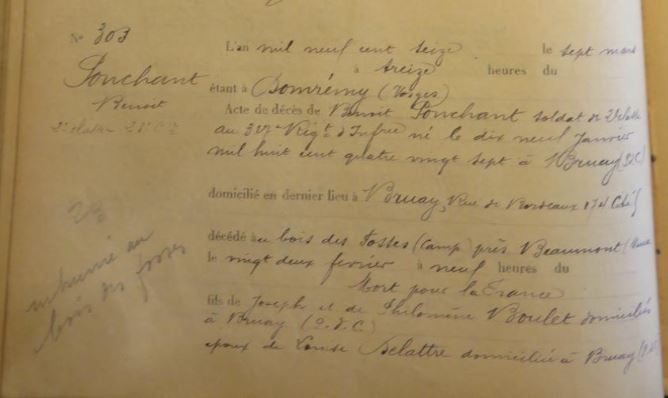 N° 303
Souchant
Benoit
2e classe 21e Cie
inhumé au
bois des fosses
L'an mil neuf cent seize le sept mars
à treize heures du
étant à Domrémy (Vosges)
Acte de décès de Benoit Souchant soldat de 2e classe
au Régt d'Infrie né le dix neuf Janvier
mil huit cent quatre vingt sept à Bruay (P.d.C)
domicilié en dernier lieu à Bruay, Rue de Bordeaux
décédé au bois des Fosses (Camp) près Beaumont (Meuse
le vingt deux fevrier à neuf heures du
Mort pour la France
fils de Joseph et de Philomène Boulet domiciliés
à Bruay (P.d.C.)
époux de Louise Delattre domiciliée à Bruay